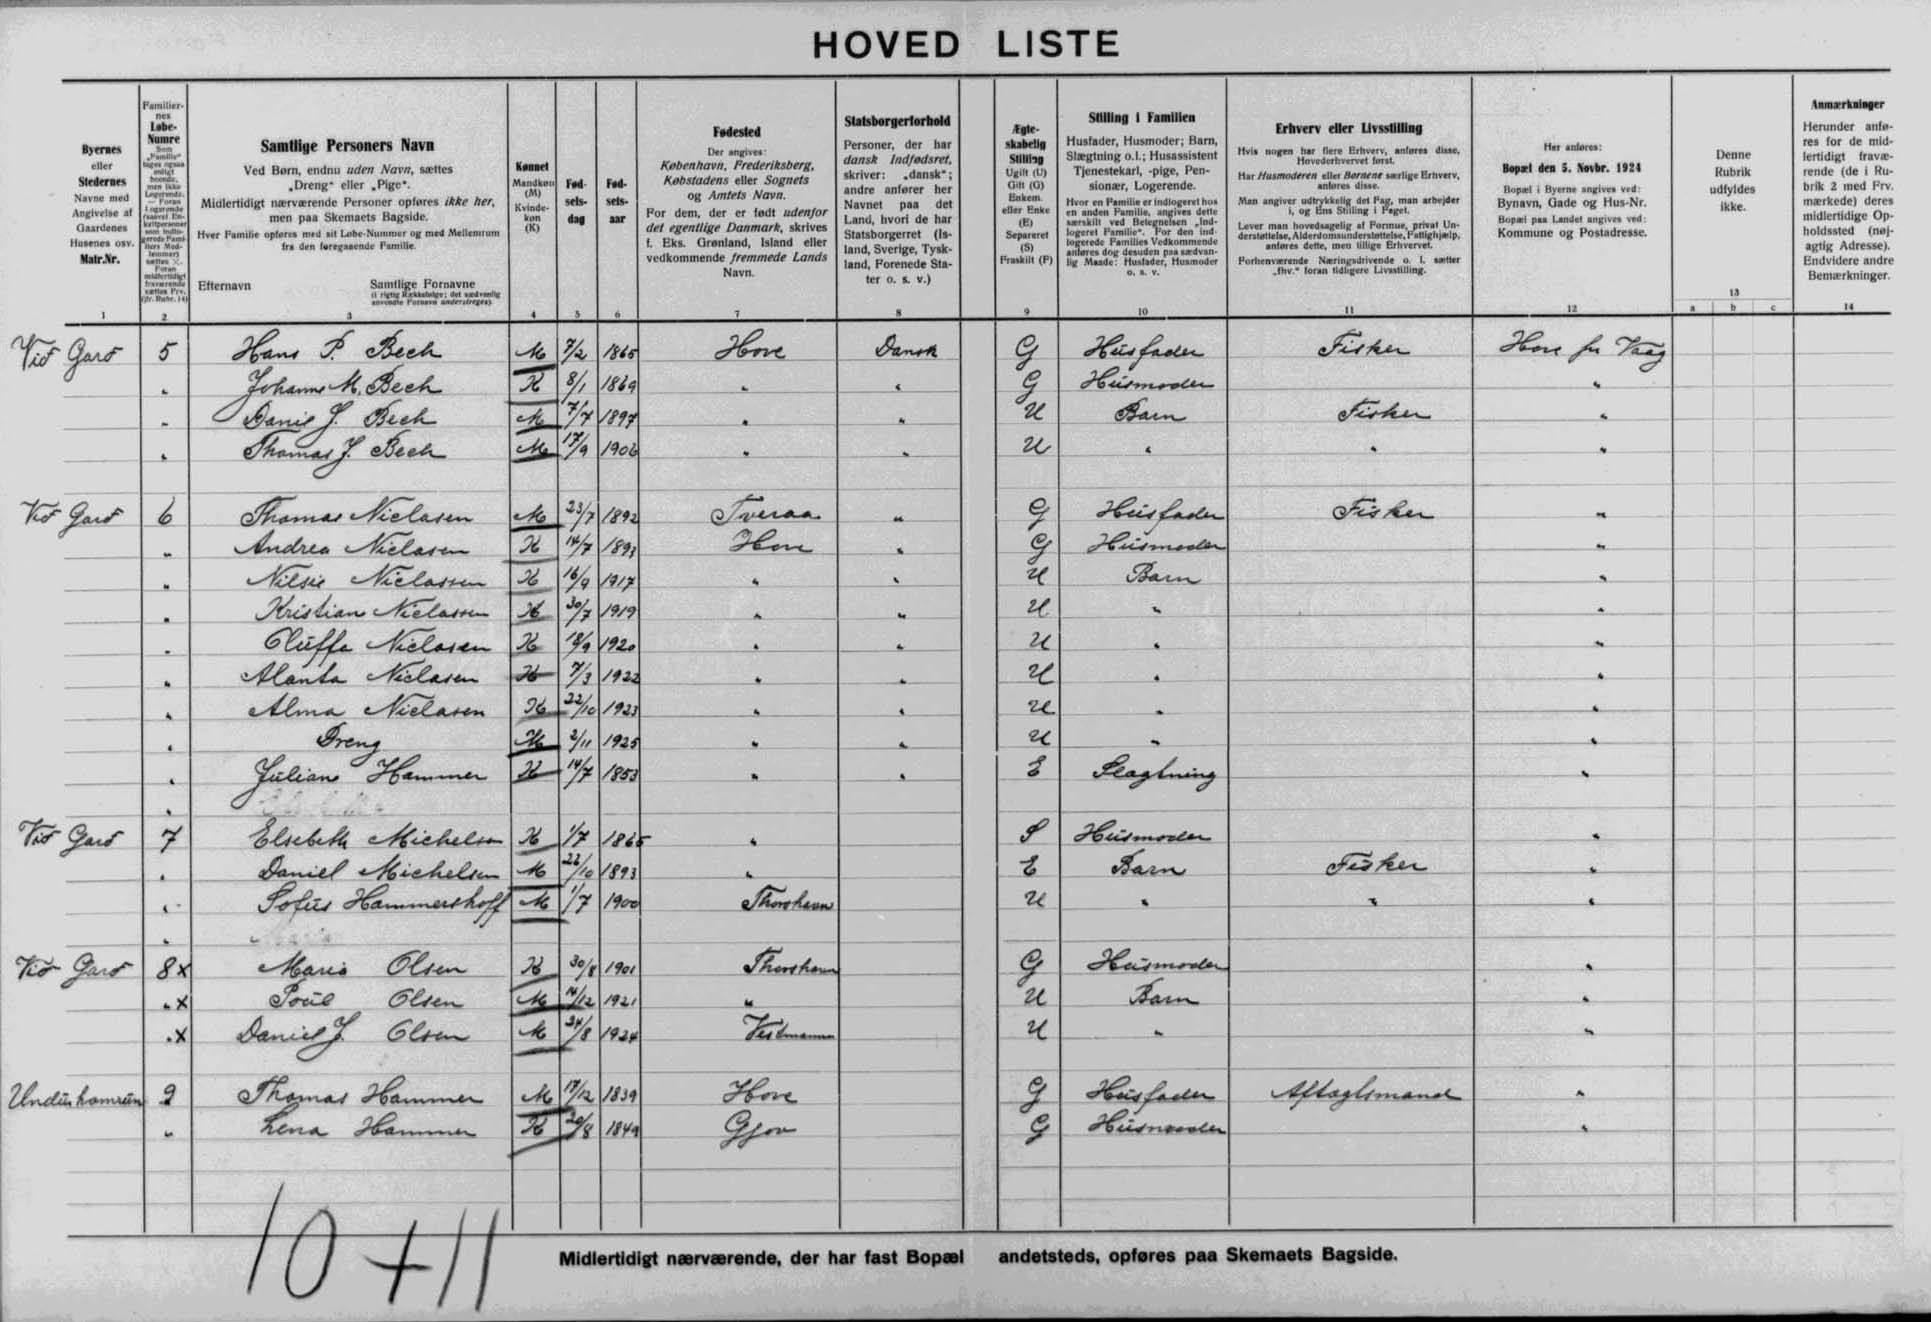 HOVED LISTE
Byernes
eller
Stedernes
Navne med
Angivelse af
Gaardenes
Husenes osv.
Matr.Nr.
1
Familier-
nes
Løbe-
Numre
2
Samtlige Personers Navn
Ved Børn, endnu uden Navn, sættes
„Dreng“ eller „Pige“.
Midlertidigt nærværende Personer opføres ikke her,
men paa Skemaets Bagside.
Hver Familie opføres med sit Løbe-Nummer og med Mellemrum
fra den foregaaende Familie.
Efternavn Samtlige Fornavne
(i rigtig Rækkefølge; det sædvanlig
anvendte Fornavn understreges).
3
Kønnet
Mandkøn
(M)
Kvinde-
køn
(K)
4
Fød-
sels-
dag
5
Fød-
sels-
aar
6
Fødested
Der angives:
København, Frederiksberg,
Købstadens eller Sognets
og Amtets Navn.
For dem, der er født udenfor
det egentlige Danmark, skrives
f. Eks. Grønland, Island eller
vedkommende fremmede Lands
Navn.
7
Statsborgerforhold
Personer, der har
dansk Indfødsret,
skriver: „dansk“;
andre anfører her
Navnet paa det
Land, hvori de har
Statsborgerret (Is-
land, Sverige, Tysk-
land, Forenede Sta-
ter o. s. v.)
8
Ægte-
skabelig
Stilling
Ugift (U)
Gift (G)
Enkem.
eller Enke
(E)
Separeret
(S)
Fraskilt (F)
9
Stilling i Familien
Husfader, Husmoder; Barn,
Slægtning o.l.; Husassistent
Tjenestekarl, -pige, Pen-
sionær, Logerende.
Hvor en Familie er indlogeret hos
en anden Familie, angives dette
særskilt ved Betegnelsen „Ind-
logeret Familie“. For den ind-
logerede Families Vedkommende
anføres dog desuden paa sædvan-
lig Maade: Husfader, Husmoder
o. s. v.
10
Erhverv eller Livsstilling
Hvis nogen har flere Erhverv, anføres disse,
Hovederhvervet først.
Har Husmoderen eller Børnene særlige Erhverv,
anføres disse.
Man angiver udtrykkelig det Fag, man arbejder
i, og Ens Stilling i Faget.
Lever man hovedsagelig af Formue, privat Un-
derstøttelse, Alderdomsunderstøttelse, Fattighjælp,
anføres dette, men tillige Erhvervet.
Forhenværende Næringsdrivende o. l. sætter
„fhv.“ foran tidligere Livsstilling.
11
Her anføres:
Bopæl den 5. Novbr. 1924
Bopæl i Byerne angives ved:
Bynavn, Gade og Hus-Nr.
Bopæl paa Landet angives ved:
Kommune og Postadresse.
12
Denne
Rubrik
udfyldes
ikke.
13
a b c
Anmærkninger
Herunder anfø-
res for de mid-
lertidigt fravæ-
rende (de i Ru-
brik 2 med Frv.
mærkede) deres
midlertidige Op-
holdssted (nøj-
agtig Adresse).
Endvidere andre
Bemærkninger.
14
Við Garð 5 Hans P. Bech M 7/2 1865 Hove Dansk G Husfader Fisker Hove pr Vaag
" Johanne M. Bech K 8/1 1869 " " G Husmoder "
" Daniel J. Bech M 7/7 1897 " " U Barn Fisker "
" Thomas J. Bech M 17/9 1906 " " U " " "
Við Garð 6 Thomas Niclasen M 23/7 1892 Tveraa " G Husfader Fisker "
" Andrea Niclasen K 14/7 1893 Hove " G Husmoder "
" Nilsie Niclassen K 16/9 1917 " " U Barn "
" Kristian Niclassen 30/7 1919 " " U " "
" Oluffa Niclasen K 18/9 1920 " " U " "
" Alanta Niclasen K 7/3 1922 " " U " "
" Alma Niclasen K 22/10 1923 " " U " "
" Dreng M 2/11 1925 " " U " "
" Juliane Hammer K 14/7 1853 " " E Slagtning "
"
Við Garð 7 Elsebeth Michelsen K 1/7 1865 " S Husmoder "
" Daniel Michelsen M 22/10 1893 " E Barn Fisker "
" Sofus Hammershoff M 1/7 1900 Thorshavn U " " "
"
Við Garð 8x Maria Olsen K 30/8 1901 Thorshavn G Husmoder "
" x Poul Olsen M 14/12 1921 " U Barn "
" x Daniel J. Olsen M 24/8 1924 Vestmanna U " "
Undir homrun 9 Thomas Hammer M 17/12 1839 Hove G Husfader Aftagtsmand "
" Lena Hammer K 20/8 1849 Gjov G Husmoder "
10+11
Midlertidigt nærværende, der har fast Bopæl andetsteds, opføres paa Skemaets Bagside.